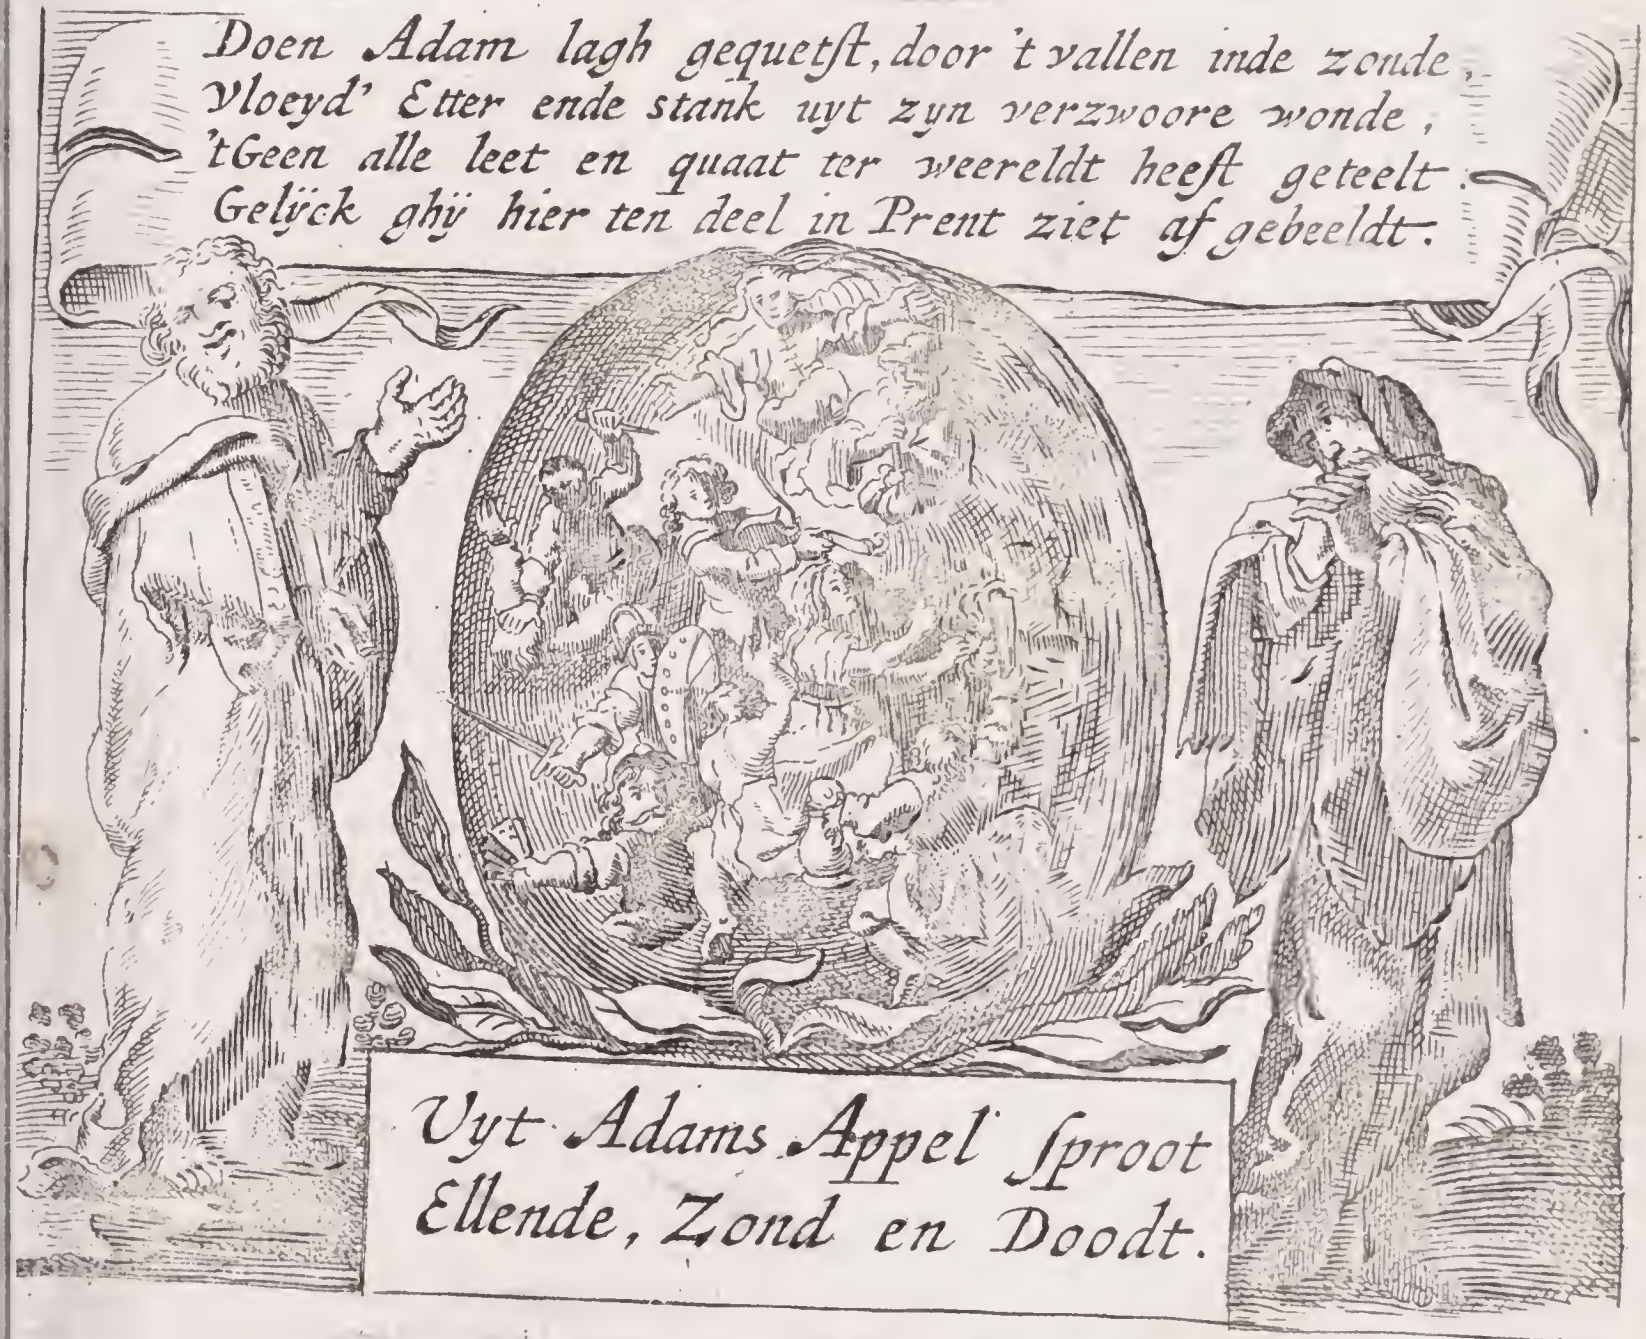 Doen Adam lagh gequetst, door 't vallen inde zonde,
Vloeyd' Etter ende stank uyt zyn verzwoore wonde,
'tGeen alle leet en quaat ter weereldt heeft geteelt.
Gelÿck ghÿ hier ten deel in Prent ziet af gebeeldt.
Uyt Adams Appel sproot
Ellende, Zond en Doodt.